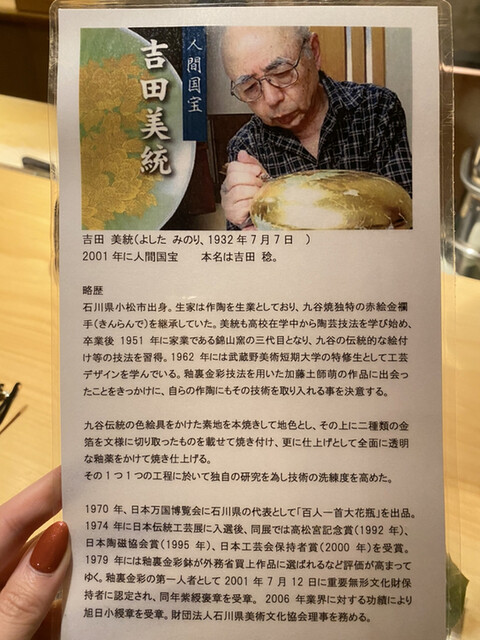 人間国宝
吉田美統
吉田 美統(よした みのり、1932年7月7日　)
2001年に人間国宝　　本名は吉田 稔。
略歴
石川県小松市出身。生家は作陶を生業としており、九谷焼独特の赤絵金襴
手(きんらんで)を継承していた。美統も高校在学中から陶芸技法を学び始め、
卒業後 1951 年に家業である錦山窯の三代目となり、九谷の伝統的な絵付
け等の技法を習得。1962 年には武蔵野美術短期大学の特修生として工芸
デザインを学んでいる。釉裏金彩技法を用いた加藤土師萌の作品に出会っ
たことをきっかけに、自らの作陶にもその技術を取り入れる事を決意する。
九谷伝統の色絵具をかけた素地を本焼きして地色とし、その上に二種類の金
箔を文様に切り取ったものを載せて焼き付け、更に仕上げとして全面に透明
な釉薬をかけて焼き仕上げる。
その1つ1つの工程に於いて独自の研究を為し技術の洗練度を高めた。
1970 年、日本万国博覧会に石川県の代表として「百人一首大花瓶」を出品。
1974 年に日本伝統工芸展に入選後、同展では高松宮記念賞(1992 年)、
日本陶磁協会賞(1995 年)、日本工芸会保持者賞(2000 年)を受賞。
1979 年には釉裏金彩鉢が外務省買上作品に選ばれるなど評価が高まって
ゆく。釉裏金彩の第一人者として 2001 年 7 月 12 日に重要無形文化財保
持者に認定され、同年紫綬褒章を受章。 2006 年業界に対する功績により
旭日小綬章を受章。財団法人石川県美術文化協会理事を務める。